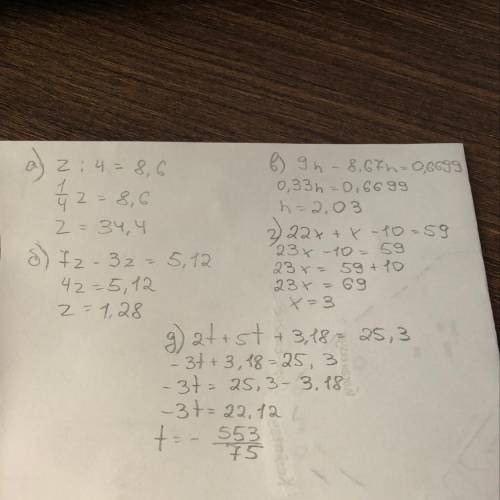 а) z : 4 = 8,6
1/4 z = 8,6
z = 34,4
б) 7z - 3z = 5,12
4z = 5,12
z = 1,28
в) 9n - 8,67n = 0,6699
0,33n = 0,6699
n = 2,03
г) 22x + x - 10 = 59
23x - 10 = 59
23x = 59 + 10
23x = 69
x = 3
д) 2t + 5t + 3,18 = 25,3
-3t + 3,18 = 25,3
-3t = 25,3 - 3,18
-3t = 22,12
t = - 553/75